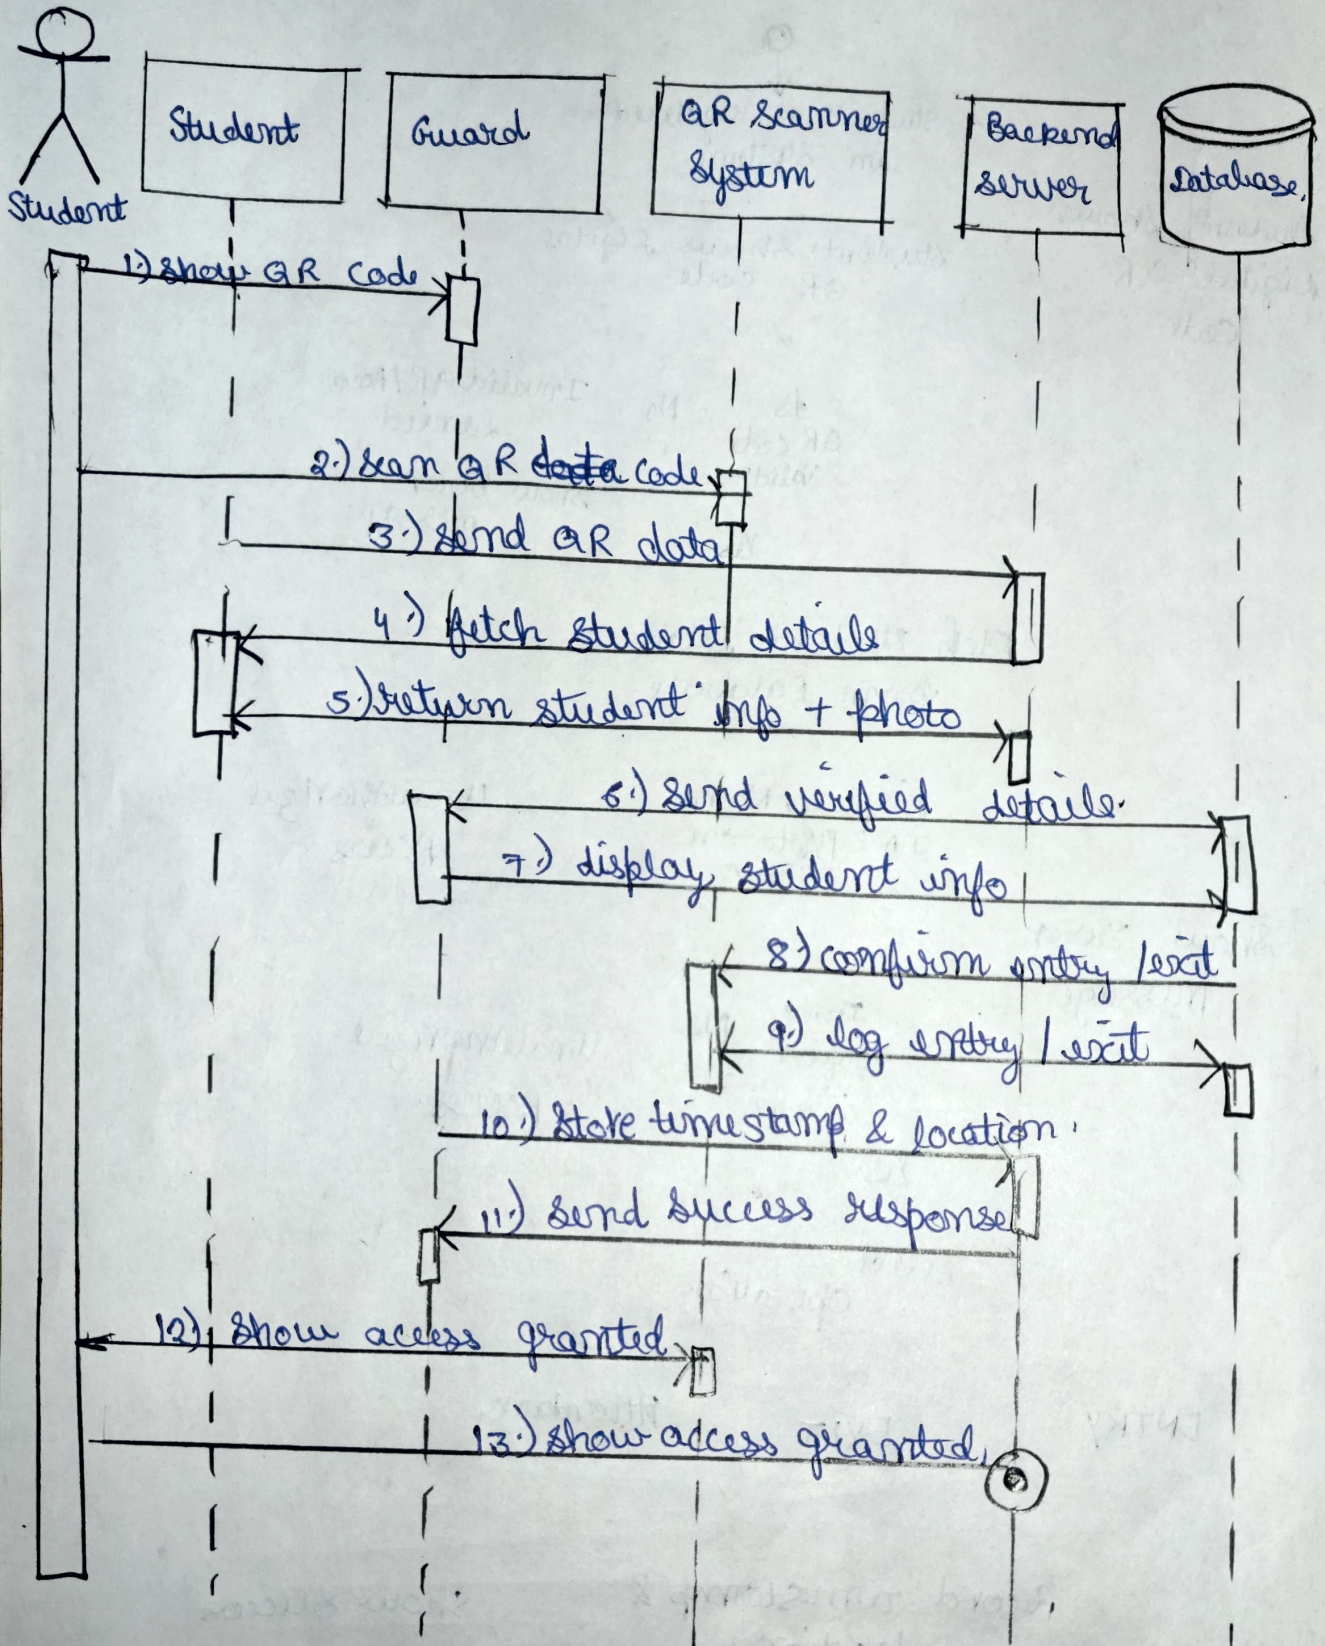 Student
Student
Guard
QR Scanner
System
Backend
server
Database.
1.) show QR code
2.) scan QR data code
3.) send QR data
4.) fetch student details
5.) return student info + photo
6.) send verified details.
7.) display student info
8) confirm entry /exit
9.) log entry / exit
10.) store timestamp & location.
11.) send success response
12) show access granted
13.) show access granted.